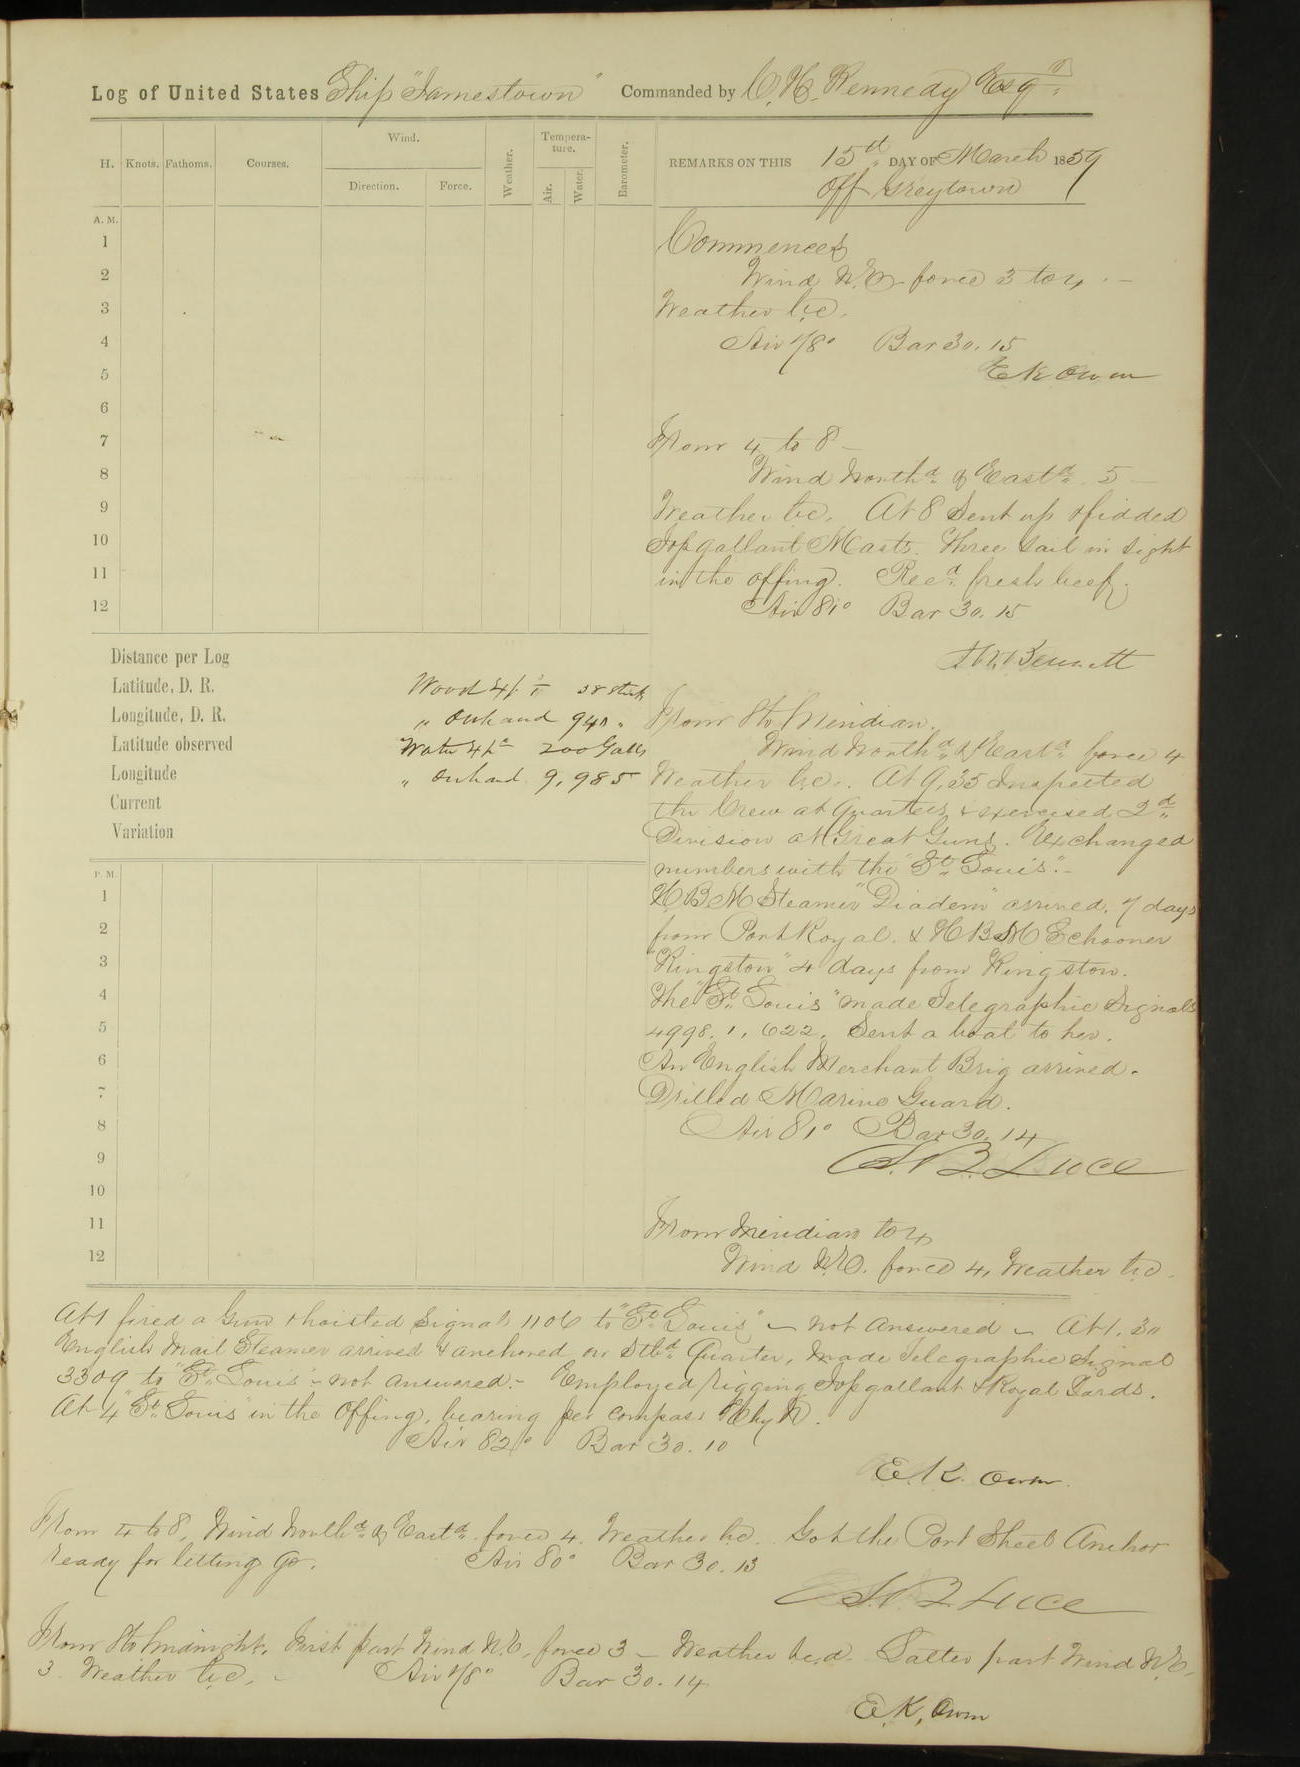 Log of United States Ship "Jamestown" Commanded by C. H. Kennedy Esqr
H. Knots. Fathoms. Courses. Wind. Direction. Force. Weather. Tempera-ture. Air. Water. Barometer.
REMARKS ON THIS 15th DAY OF March 1859
Off Greytown
A. M.
1
2
3
4
5
6
7
8
9
10
11
12
Commences
Wind N.E. force 3 to 4. –
Weather b.c.
Air 78° Bar 30.15
E K Owen
From 4 to 8 –
Wind Northd & Eastd. 5 –
Weather b.c. At 8 Sent up & fidded
Top gallant Masts. Three sail in sight
in the offing. Recd. fresh beef.
Air 81° Bar 30.15
Bennett
Distance per Log
Latitude, D. R.
Longitude, D. R.
Latitude observed
Longitude
Current
Variation
Wood 38 sticks
" On hand 940 "
Water 200 Galls
" On hand 9,985
From 8 to Meridian.
Wind Northd & Eastd force 4
Weather b.c. At 9.35 Inspected
the Crew at Quarters & exercised 2d
Division at Great Guns. Exchanged
numbers with the "St. Louis". –
H B M Steamer "Diadem" arrived, 7 days
from Port Royal. & H B M Schooner
"Kingston" 4 days from Kingston.
The "St. Louis" made Telegraphic Signals
4998. 1, 622. Sent a boat to her.
An English Merchant Brig arrived.
Drilled Marine Guard.
Air 81° Bar 30.14
S. B. Luce
P. M.
1
2
3
4
5
6
7
8
9
10
11
12
From Meridian to 4
Wind N.E. force 4, Weather b.c.
At 1 fired a Gun & hoisted Signal 1106 to "St. Louis" – not Answered – At 1.30
English Mail Steamer arrived & anchored on Stbd Quarter, Made Telegraphic Signal
3309 to "St. Louis" – not answered. – Employed rigging Top gallant & Royal Yards.
At 4 "St. Louis" in the Offing, bearing per compass E by N.
Air 82° Bar 30.10
E. K. Owen
From 4 to 8, Wind Northd & Eastd force 4. Weather b.c. Got the Port Sheet Anchor
ready for letting go. Air 80° Bar 30.13
S. B. Luce
From 8 to Midnight. First part Wind N.E. force 3 – Weather b.c.d. Latter part Wind N.E.
3. Weather b.c. – Air 78° Bar 30.14
E. K. Owen